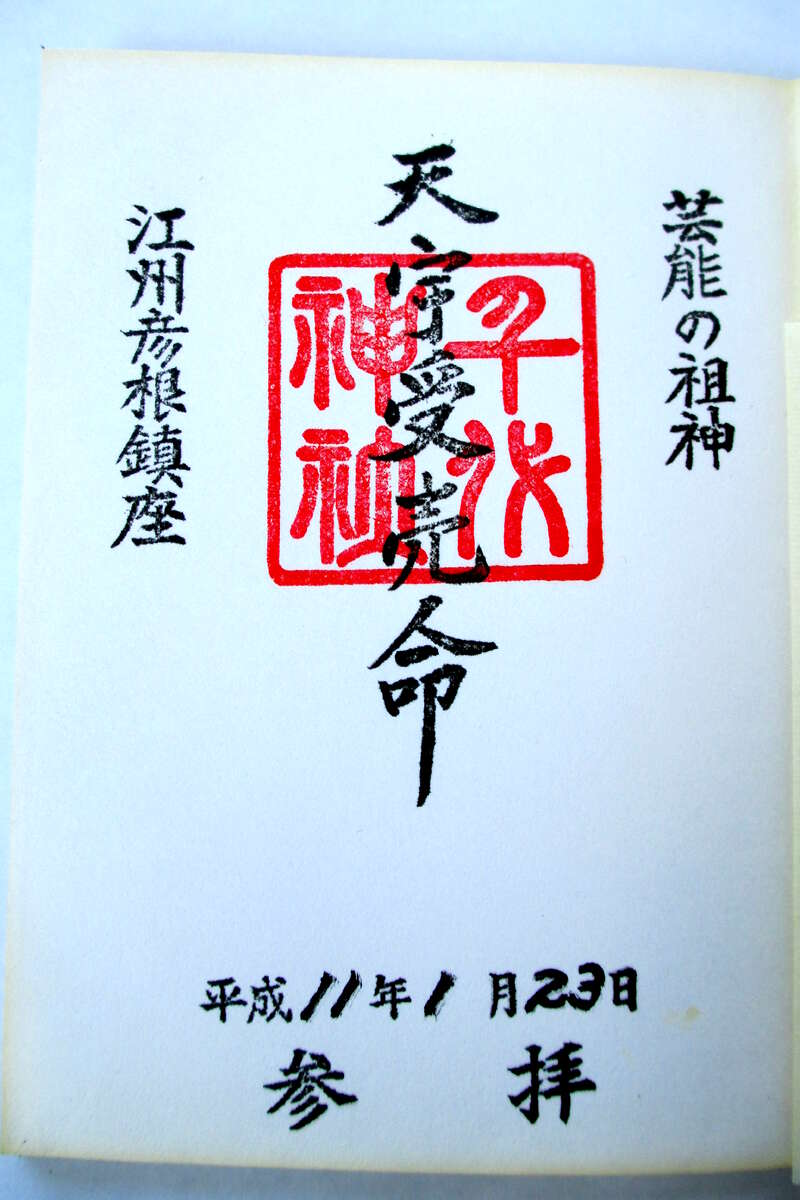 芸能の祖神
天宇受売命
千代
神社
江州彦根鎮座
平成11年1月23日
参拝